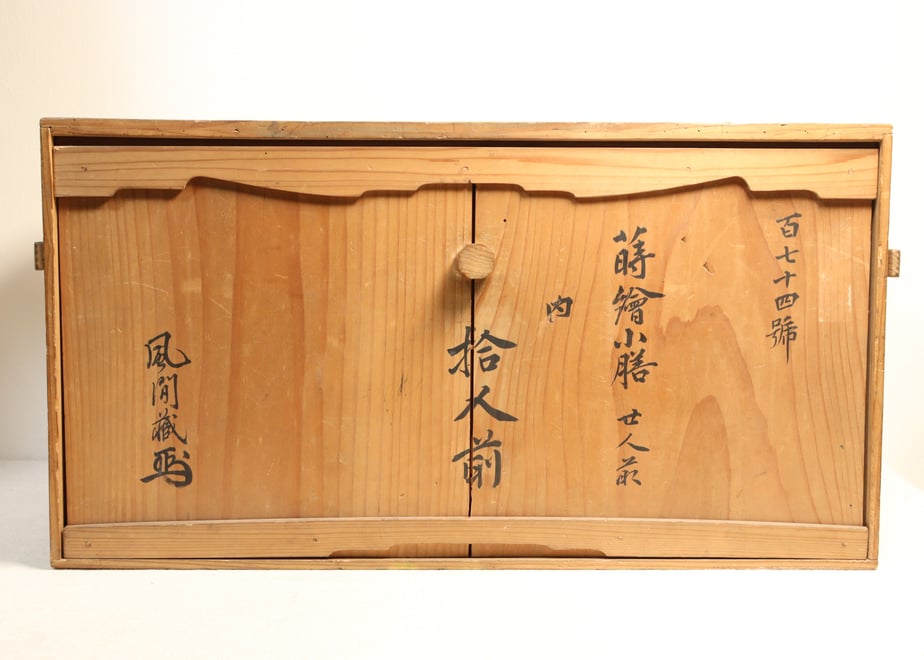 百七十四號
蒔繪小膳 廿人前
内
拾人前
風間藏